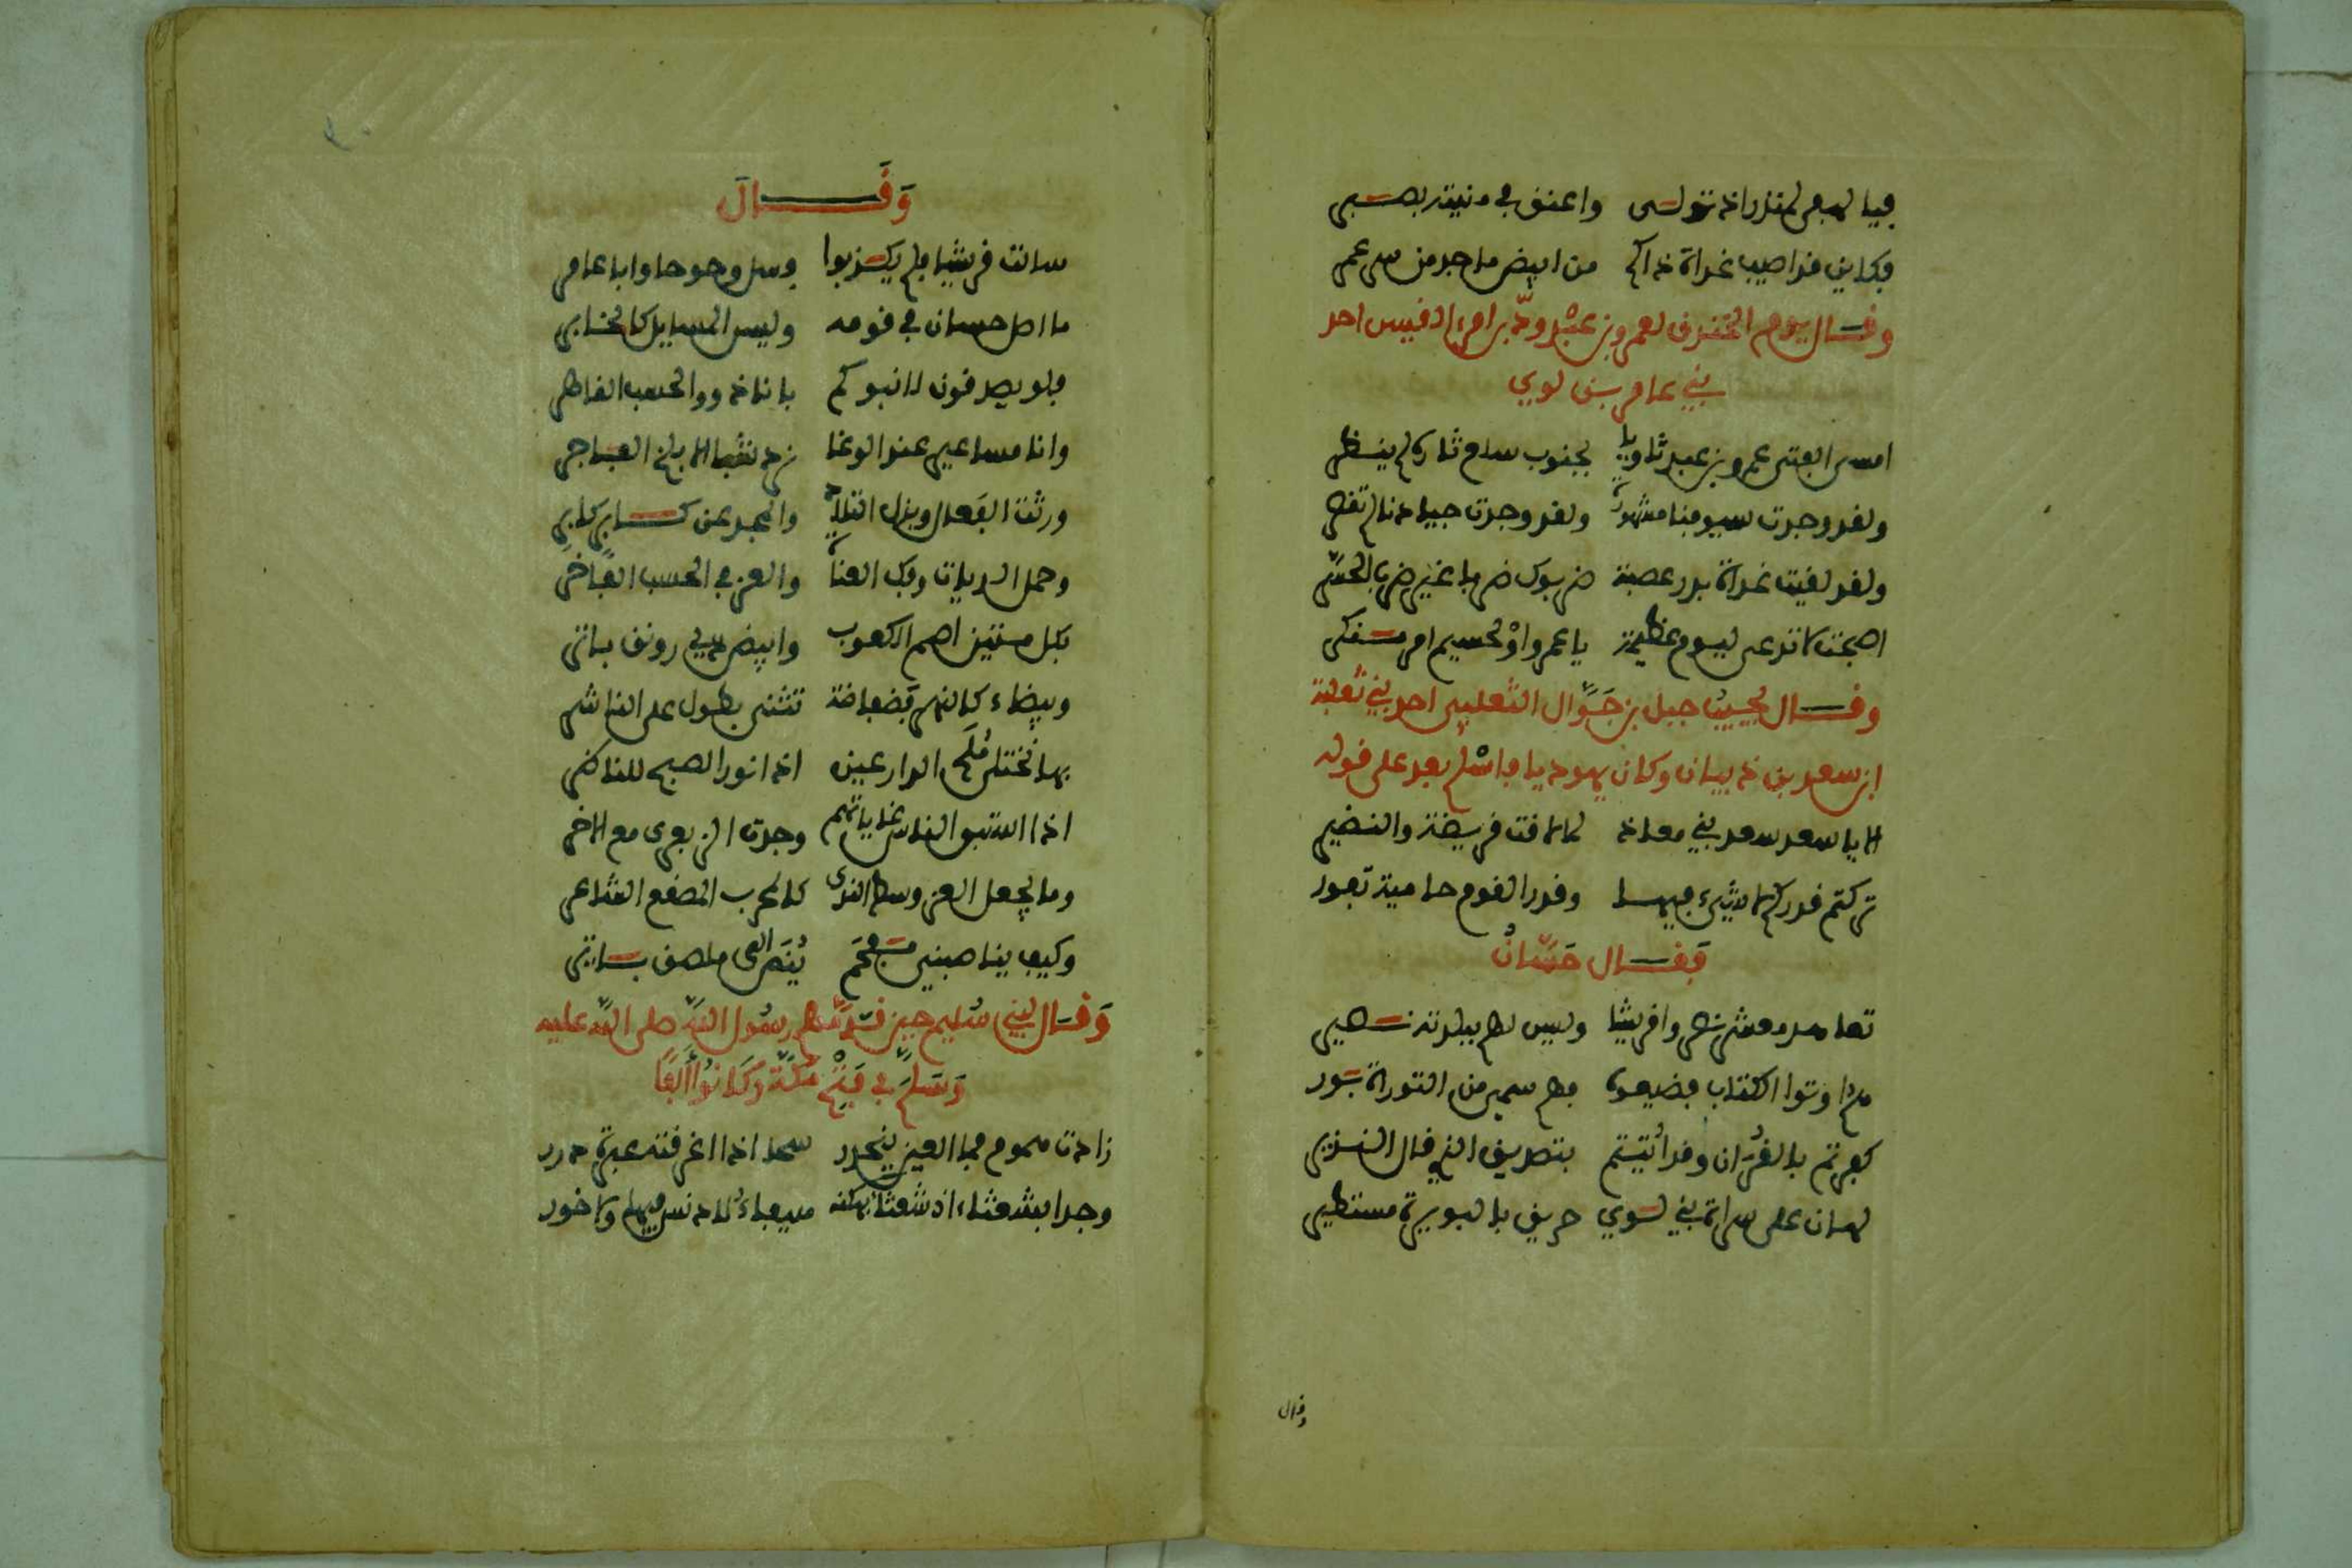 فيا لهفي لمنذر اذ تولى واعنق في منيته بصبر
فكاين قد اصيب غداة ذاكم من ابيض ماجد من سر عمرو
وقال يوم الخندق لعمرو بن عبد ود بن امرء القيس احد
بني عامر بن لوي
امسى الفتى عمرو بن عبد ثاويا بجنوب سلع ثاره لم ينظر
ولقد وجدت سيوفنا مشهورة ولقد وجدت جيادنا لم تقصر
ولقد لقيت غداة بدر عصبة ضربوك ضربا غير ضرب الحسر
اصبحت لا تدعى ليوم عظيمة يا عمرو او لجسيم امر منكر
وقال يجيب جبل بن جوال الثعلبي احد بني ثعلبة
ابن سعد بن ذبيان وكان يهوديا فاسلم بعد على قوله
الا يا سعد سعد بني معاذ لما لاقت قريضة والنضير
تركتم قدركم لا شيء فيها وقدر القوم حامية تفور
فقال حسان
تعاهد معشر نصروا قريشا وليس لهم ببلدته نصير
هم اوتوا الكتاب فضيعوه فهم عمي من التوراة بور
كفرتم بالقران وقد اتيتم بتصديق الذي قال النذير
لهان على سراة بني لوي حريق بالبويرة مستطير
وقال
وقال
سالت قريشا فلم يكذبوا وسل وحوحا وابا عامر
ما اصل حسان في قومه وليس المسايل كالخابر
فلو يصدقون لانبوكم بانا ذوو الحسب القاهر
وانا مساعير عند الوغا نرد شبا الابلخ الفاجر
ورثت الفعال وبذل التلاد والمجد عن كابر كابر
وحمل الديات وفك العناة والعز في الحسب الفاخر
بكل متين اصم الكعوب وابيض ذي رونق باتر
وبيضاء كالنهي فضفاضة تثنى بطول على الناشر
بها نختلي مهج الدارعين اذا نور الصبح للناظر
اذا استبق الناس غاياتهم وجدت الزبعرى مع الاخر
وما يجعل العز وسط الندي كالمحرب المصقع الشاعر
وكيف يناصبني مفحم ينص الى ملصق بساتر
وقال لبني سليم حين قدمهم رسول الله صلى الله عليه
وسلم في فتح مكة وكانوا الفا
زادت هموم فما العين ينحدر سحا اذا اغرقته عبرة درر
وجدا بشعثاء اذ شعثا بهكنة هيفاء لا دنس فيها ولا خور